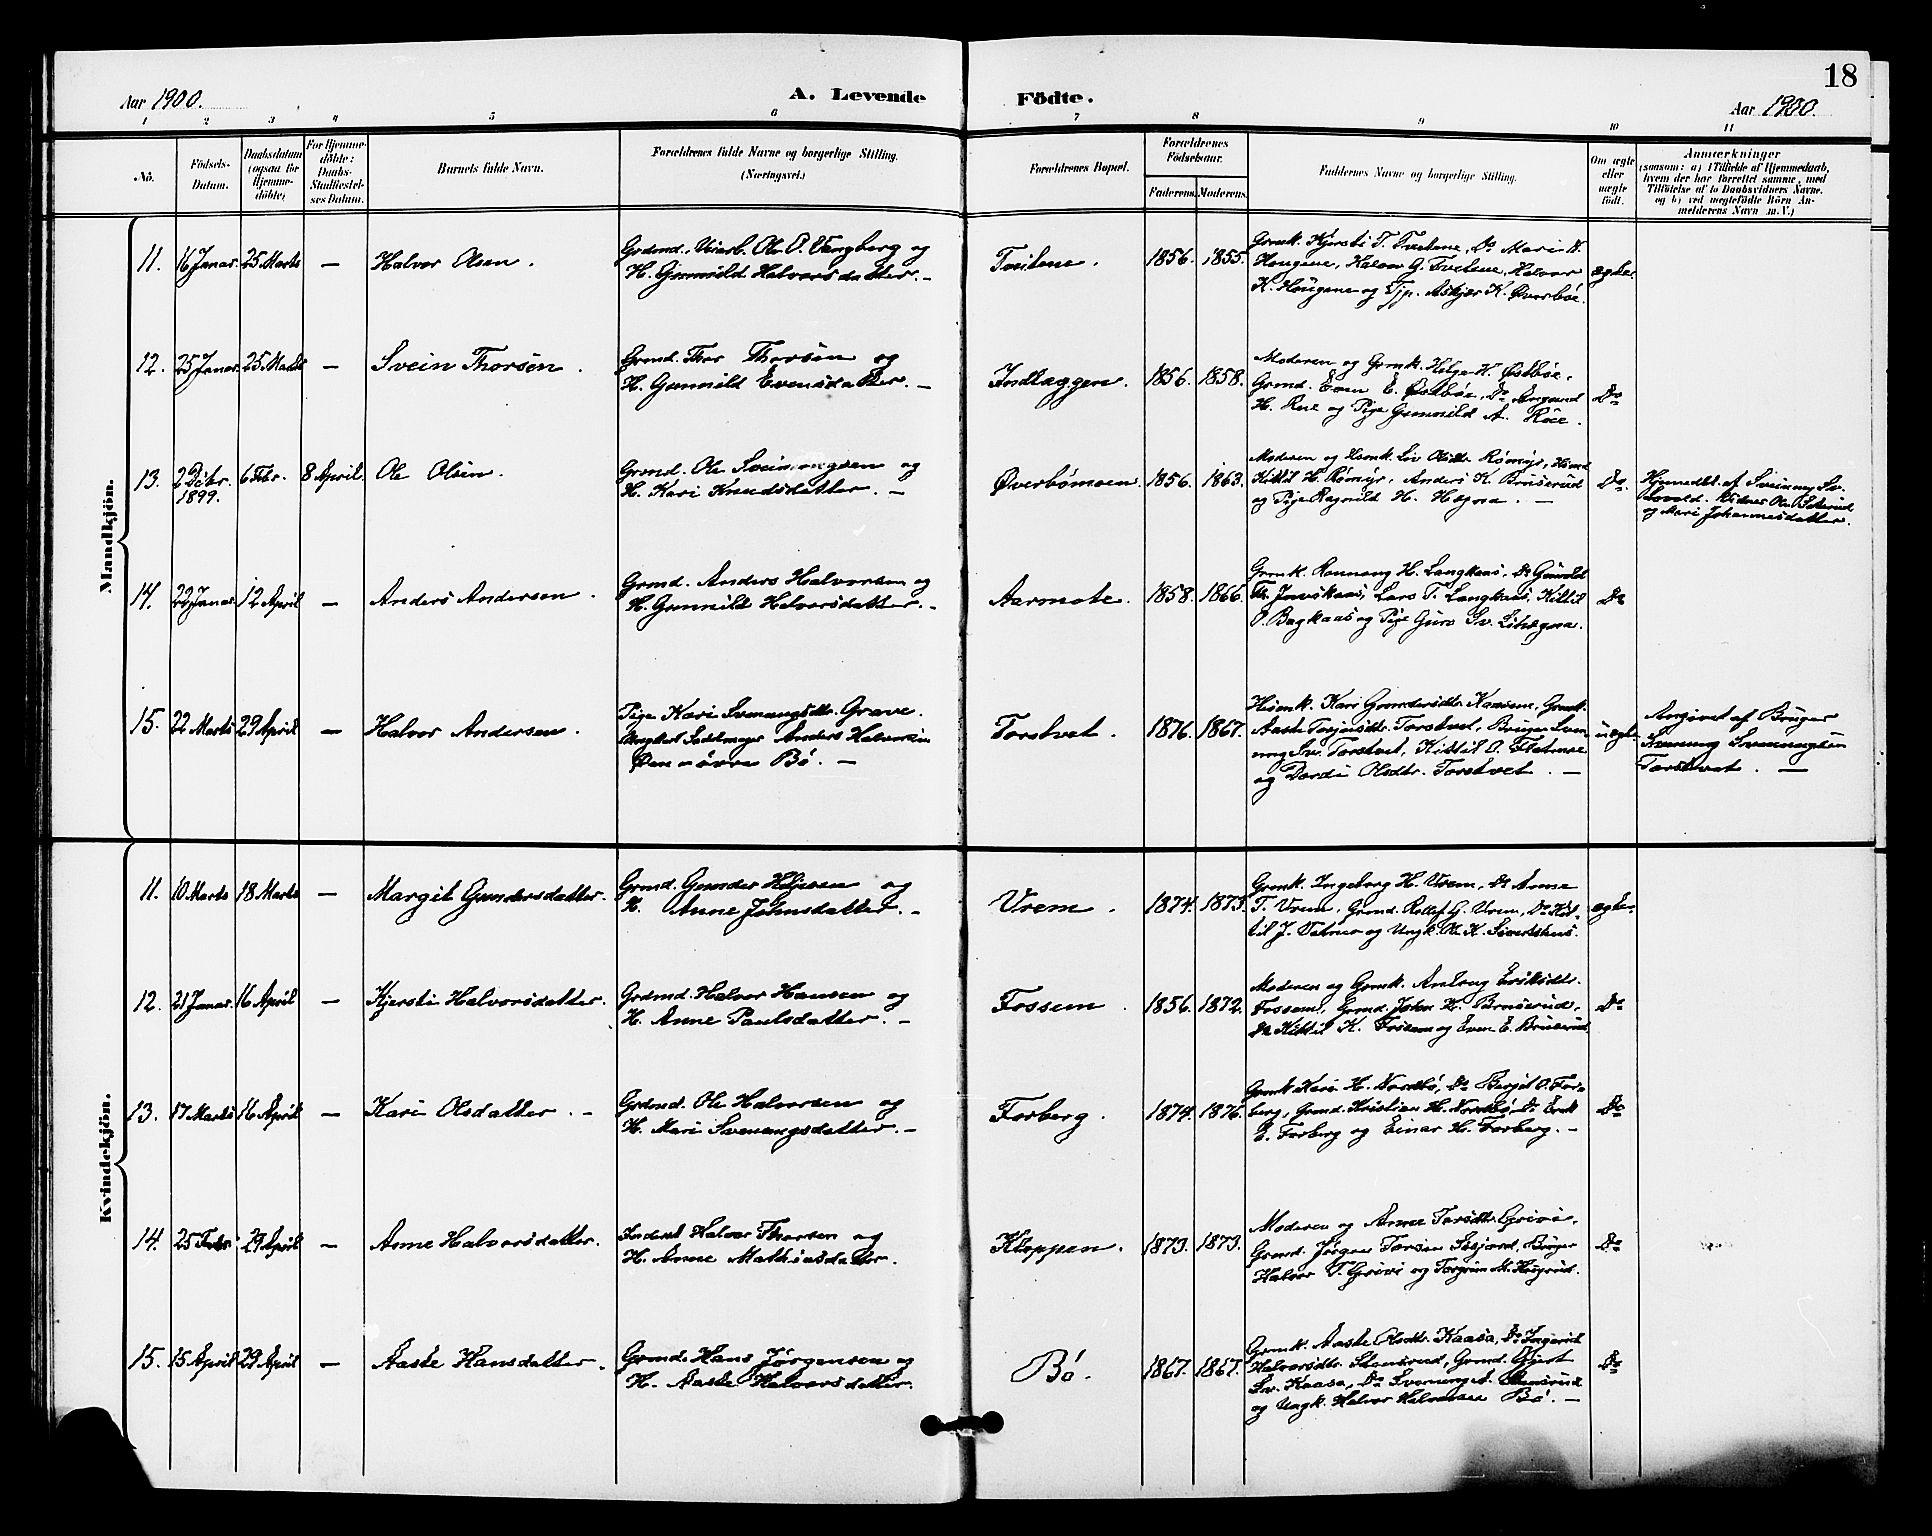 18
Aar 1900.
A. Levende Födte.
Aar 1900.
1 2 3 4 5 6 7 8 9 10 11
No.
Födsels-
Datum.
Daabsdatum
(ogsaa for
Hjemme-
döbte)
For Hjemme-
döbte:
Daabs-
Stadfæstel-
ses Datum.
Barnets fulde Navn.
Forældrenes fulde Navne og borgerlige Stilling.
(Næringsvei.)
Forældrenes Bopæl.
Forældrenes
Födselsaar.
Faderens. Moderens.
Faddernes Navne og borgerlige Stilling.
Om ægte
eller
uægte
födt.
Anmærkninger
(saasom: a) i Tilfælde af Hjemmedaab,
hvem der har forrettet samme, med
Tilföielse af to Daabsvidners Navne.
og b) ved uægtefödte Börn An-
melderens Navn m. V.)
Mandkjön.
11. 16 Januar. 25 Marts — Halvor Olsen.
Grdmd. Ole O. Vangberg og
H. Gunnild Halvorsdatter. —
Tveitene. 1856. 1855.
Grmk. Kjersti T. Tveitene, Do Mari K.
Haugene, Halvor G. Tveitene, Halvor
K. Haugene og Tjp. Askjer K. Øverbøe.
ægte.
12. 25 Januar. 25 Marts — Svein Thorsen.
Grmd. Thor Thorsen og
H. Gunnild Evensdatter. —
Indlaggen. 1856. 1858.
Moderen og Grmk. Helge H. Østbøe,
Grmd. Even E. Østbøe, Do Amund
H. Rue og Pige Gunnild A. Roe.
Do
13. 2 Debr. 1899. 6 Febr. 8 April. Ole Olsen.
Grmd. Ole Sveinungsen og
H. Kari Knudsdatter. —
Øverbømoen. 1856. 1863.
Moderen og Husmk. Liv Olsdtr. Rømyr, Husmd
Kittil H. Rømyr, Anders K. Bruserud
og Pige Ragnild H. Hegna. —
Do.
Hjemmedbt. af Sveinung Sv.
og Mari Johannesdatter.
14. 22 Januar. 12 April — Anders Andersen.
Grmd. Anders Halvorsen og
H. Gunnild Halvorsdatter. —
Aarmote. 1858. 1866.
Grmk. Rannaug H. Langkaas, Do Gunild
Th. Juvskaas, Lars T. Langkaas, Kittil
O. Bagkaas og Pige Guro Sv. Lihegna.
Do
15. 22 Marts 29 April — Halvor Andersen.
Pige Kari Svenungsdtr. Grave.
Ungkarl Sadelmager Anders Halvorsen
Øen — øvre Bø. —
Torstvet. 1876. 1867.
Husmk. Kari Gundersdtr. Kaasene, Grmk.
Aaste Torjusdtr. Torstvet, Bruger Sven-
ung Sv. Torstvet, Kittil O. Flatmoe
og Dordi Olsdtr. Torstvet. —
uægte.
Angivet af Bruger
Svenung Svenungsen
Torstvet. —
Kvindekjön.
11. 10 Marts 18 Marts — Margit Gundersdatter.
Grmd. Gunder Heljesen og
H. Anne Johnsdatter. —
Vrem. 1874. 1873.
Grmk. Ingeborg H. Vrem, Do Anne
T. Vrem, Grmd. Rollef G. Vrem, Do Kit-
til J. Vatnar og Ungk. Ole K. Sivertshus.
ægte.
12. 21 Januar. 16 April — Kjersti Halvorsdatter.
Grdmd. Halvor Hansen og
H. Anne Paulsdatter. —
Fossem. 1856. 1872.
Moderen og Grmk. Anlaug Eriksdtr.
Fossem, Grmd. John H. Bruserud,
Do Kittil K. Fossem og Even E. Bruserud.
Do
13. 17 Marts 16 April — Kari Olsdatter. —
Grdmd. Ole Halvorsen og
H. Mari Svenungsdatter. —
Forberg. 1874. 1876.
Grmk. Kari H. Nordbø, Do Bergit O. For-
berg, Grmd. Kristian H. Nordbø, Do Erik
E. Forberg og Einar H. Forberg. —
Do
14. 25 Febr. 29 April — Anne Halvorsdatter.
Inderst Halvor Thorsen og
H. Anne Mathiasdatter.
Kloppen. 1873. 1873.
Moderen og Anne Torsdtr. Grivi,
Grmd. Jørgen Torsen Seljord, Bruger
Halvor T. Grivi og Torgrim M. Haugerud.
Do
15. 15 April 29 April — Aaste Hansdatter.
Grmd. Hans Jørgensen og
H. Aaste Halvorsdatter.
Bø. 1867. 1867.
Grmk. Aaste Olsdtr. Kaasa, Do Ingerid
Halvorsdtr. Stensrud, Grmd. Gjert
Sv. Kaasa, Do Svenung J. Stensrud
og Ungk. Halvor Halvorsen Bø. —
Do